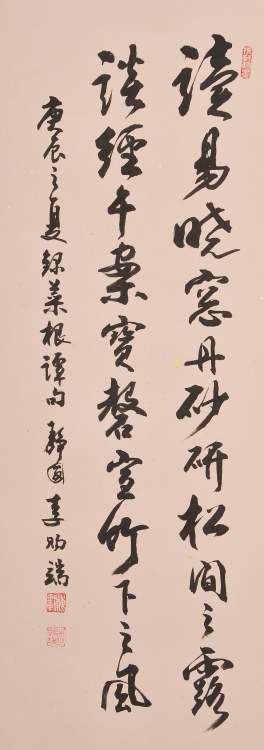 讀易曉窓丹砂研松間之露
談經午案寶磬宣竹下之風
庚辰之夏錄菜根譚句 靜園 李端